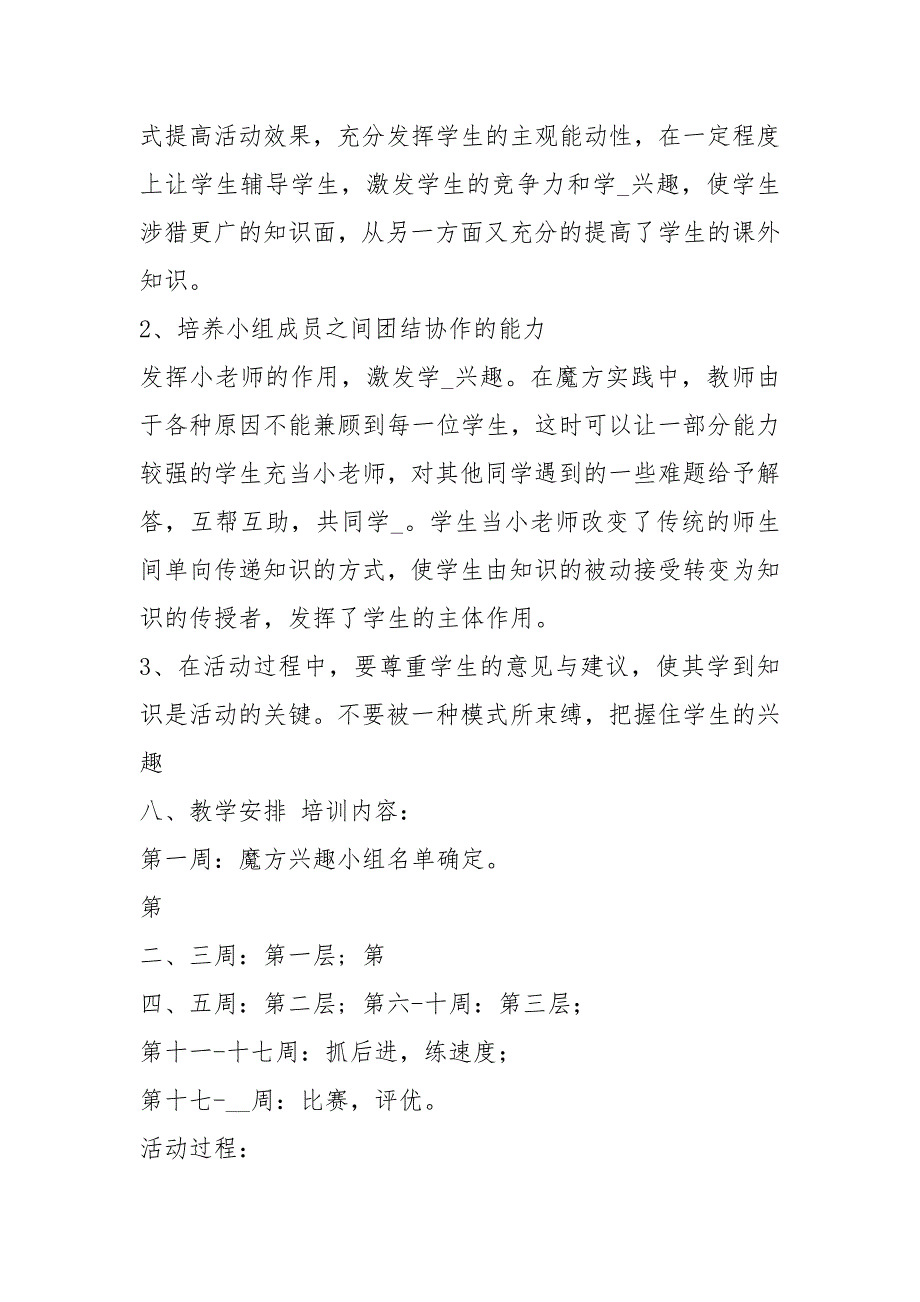 式提高活动效果，充分发挥学生的主观能动性，在一定程度
上让学生辅导学生，激发学生的竞争力和学_兴趣，使学生
涉猎更广的知识面，从另一方面又充分的提高了学生的课外
知识。
2、培养小组成员之间团结协作的能力
发挥小老师的作用，激发学_兴趣。在魔方实践中，教师由
于各种原因不能兼顾到每一位学生，这时可以让一部分能力
较强的学生充当小老师，对其他同学遇到的一些难题给予解
答，互帮互助，共同学_。学生当小老师改变了传统的师生
间单向传递知识的方式，使学生由知识的被动接受转变为知
识的传授者，发挥了学生的主体作用。
3、在活动过程中，要尊重学生的意见与建议，使其学到知
识是活动的关键。不要被一种模式所束缚，把握住学生的兴
趣
八、教学安排 培训内容：
第一周：魔方兴趣小组名单确定。
第
二、三周：第一层；第
四、五周：第二层；第六-十周：第三层；
第十一-十七周：抓后进，练速度；
第十七-__周：比赛，评优。
活动过程：